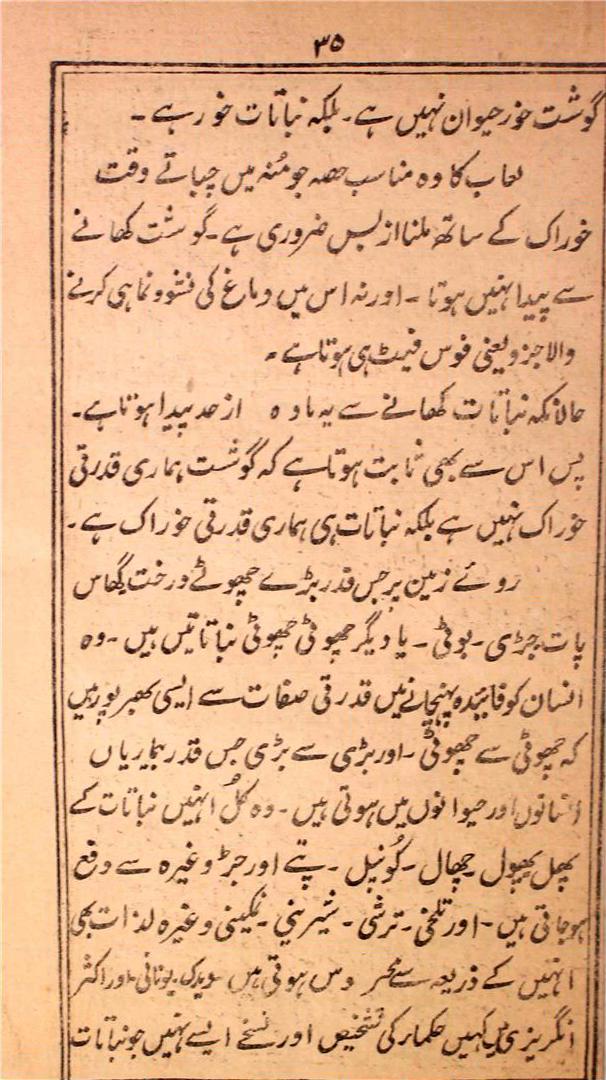 ۳۵
گوشت خور حیوان نہیں ہے۔ بلکہ نباتات خور ہے۔
لعاب کا وہ مناسب حصہ جو مُنہ میں چباتے وقت
خوراک کے ساتھ ملنا ازبس ضروری ہے۔ گوشت کھانے
سے پیدا نہیں ہوتا۔ اور نہ اس میں دماغ کی نشوونما ہی کرنے
والا جزو یعنی فوس فیٹ ہی ہوتا ہے۔
حالانکہ نباتات کھانے سے یہ مادہ ازحد پیدا ہوتا ہے۔
پس اس سے بھی ثابت ہوتا ہے کہ گوشت ہماری قدرتی
خوراک نہیں ہے بلکہ نباتات ہی ہماری قدرتی خوراک ہے۔
روئے زمین پر جس قدر بڑے چھوٹے درخت گھاس
پات جڑی۔ بوٹی۔ یا دیگر چھوٹی چھوٹی نباتاتیں ہیں۔ وہ
انسان کو فایٔدہ پہنچانے میں قدرتی صفات سے ایسی بھرپور ہیں
کہ چھوٹی سے چھوٹی۔ اور بڑی سے بڑی جس قدر بیماریاں
انسانوں اور حیوانوں میں ہوتی ہیں۔ وہ کُل انہیں نباتات کے
پھل پھول چھال۔ کُونپل۔ پتے اور جڑ وغیرہ سے دفع
ہوجاتی ہیں۔ اور تلخی۔ ترشی۔ شیرینی۔ نمکینی وغیرہ لذات بھی
انہیں کے ذریعہ سے محسوس ہوتی ہیں ویدک یونانی اور اکثر
انگریزی میں کہیں حکماء کی تشخیص اور نسخے ایسے نہیں جو نباتات